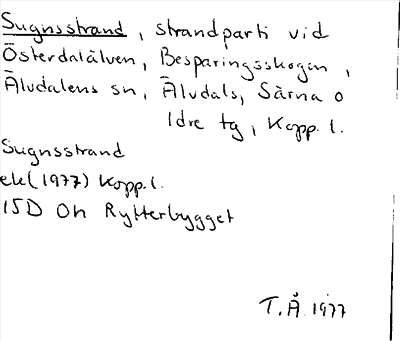 Sugnsstrand, strandparti vid
Österdalälven, Besparingsskogen,
Älvdalens sn, Älvdals, Särna o
Idre tg, Kopp. l.
Sugnsstrand
ek (1977) Kopp. l.
15D 0h Rytterbygget
T.Å. 1977